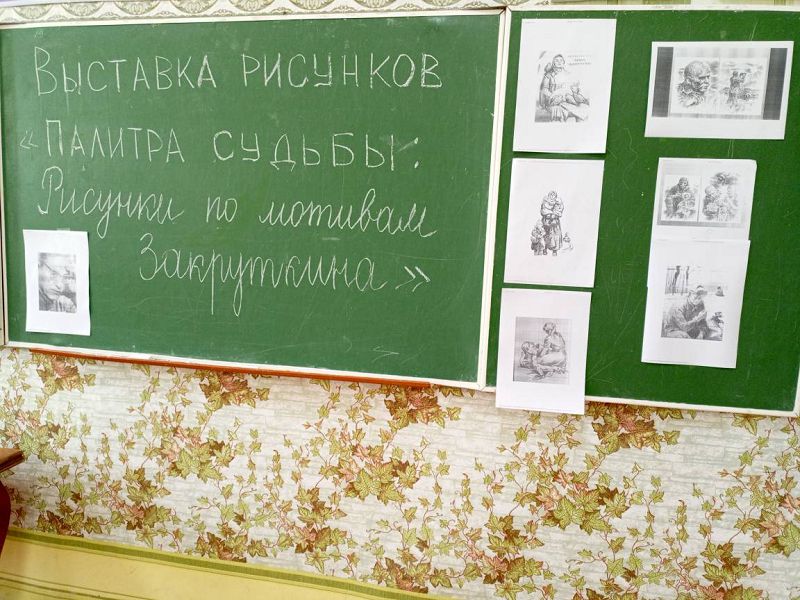 Выставка рисунков
«Палитра судьбы:
Рисунки по мотивам
Закруткина»